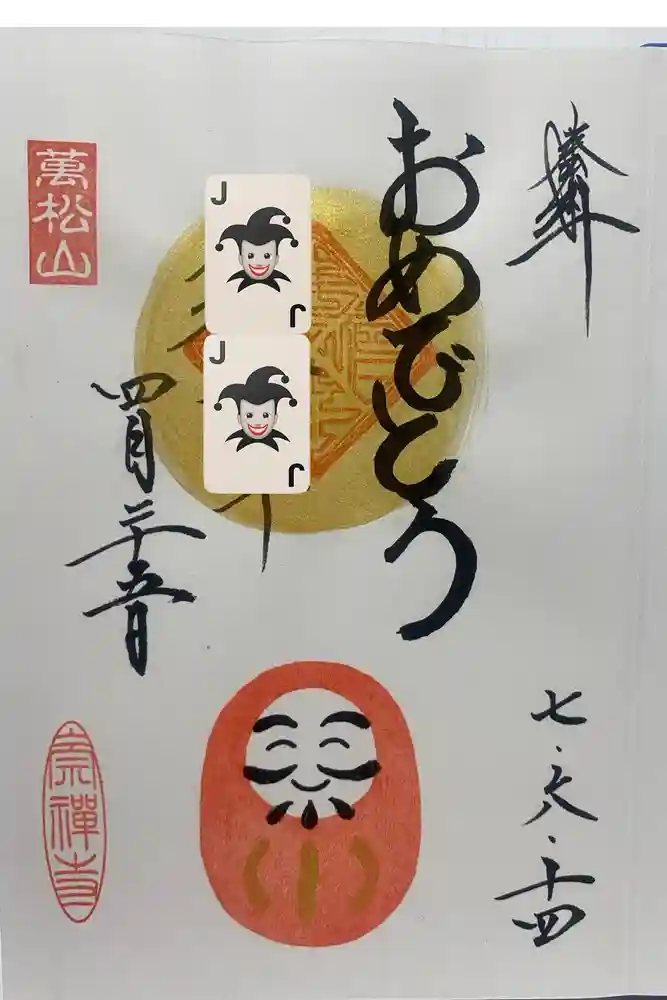 奉拝
七・六・十四
おめでとう
J
J
J
J
四月二十五日
萬松山
崇禪寺